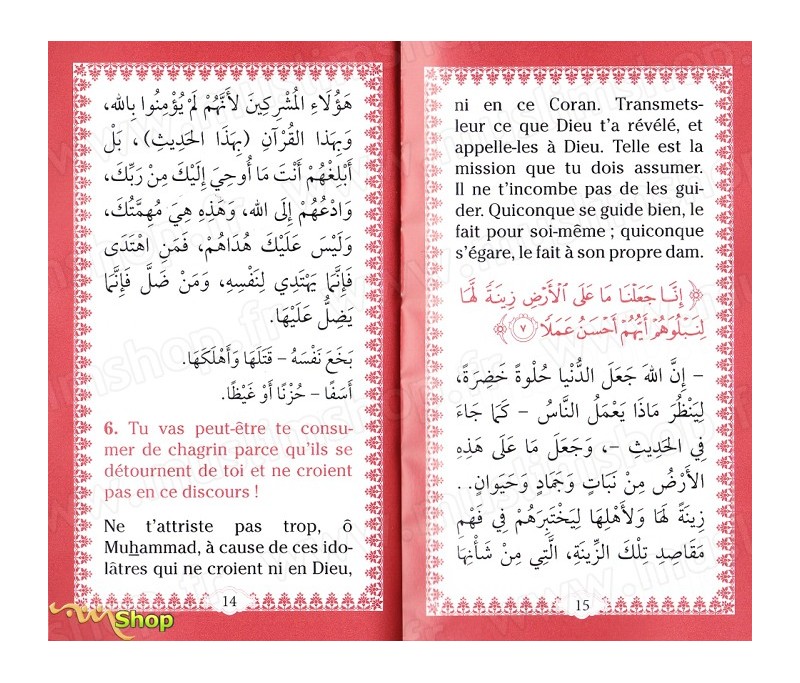 هَؤُلَاءِ الْمُشْرِكِينَ لِأَنَّهُمْ لَمْ يُؤْمِنُوا بِاللهِ،
وَبِهَذَا الْقُرْآنِ (بِهَذَا الْحَدِيثِ)، بَلْ
أَبْلِغْهُمْ أَنْتَ مَا أُوحِيَ إِلَيْكَ مِنْ رَبِّكَ،
وَادْعُهُمْ إِلَى اللهِ، وَهَذِهِ هِيَ مُهِمَّتُكَ،
وَلَيْسَ عَلَيْكَ هُدَاهُمْ، فَمَنِ اهْتَدَى
فَإِنَّمَا يَهْتَدِي لِنَفْسِهِ، وَمَنْ ضَلَّ فَإِنَّمَا
يَضِلُّ عَلَيْهَا.
بَخَعَ نَفْسَهُ – قَتَلَهَا وَأَهْلَكَهَا.
أَسَفًا – حُزْنًا أَوْ غَيْظًا.
6. Tu vas peut-être te consu-
mer de chagrin parce qu'ils se
détournent de toi et ne croient
pas en ce discours !
Ne t'attriste pas trop, ô
Muhammad, à cause de ces ido-
lâtres qui ne croient ni en Dieu,
14
ni en ce Coran. Transmets-
leur ce que Dieu t'a révélé, et
appelle-les à Dieu. Telle est la
mission que tu dois assumer.
Il ne t'incombe pas de les gui-
der. Quiconque se guide bien, le
fait pour soi-même ; quiconque
s'égare, le fait à son propre dam.
﴿ إِنَّا جَعَلْنَا مَا عَلَى ٱلْأَرْضِ زِينَةً لَّهَا
لِنَبْلُوَهُمْ أَيُّهُمْ أَحْسَنُ عَمَلًا ٧ ﴾
– إِنَّ اللهَ جَعَلَ الدُّنْيَا حُلْوَةً خَضِرَةً،
لِيَنْظُرَ مَاذَا يَعْمَلُ النَّاسُ – كَمَا جَاءَ
فِي الْحَدِيثِ –، وَجَعَلَ مَا عَلَى هَذِهِ
الْأَرْضِ مِنْ نَبَاتٍ وَجَمَادٍ وَحَيَوَانٍ..
زِينَةً لَهَا وَلِأَهْلِهَا لِيَخْتَبِرَهُمْ فِي فَهْمِ
مَقَاصِدِ تِلْكَ الزِّينَةِ، الَّتِي مِنْ شَأْنِهَا
15
Shop